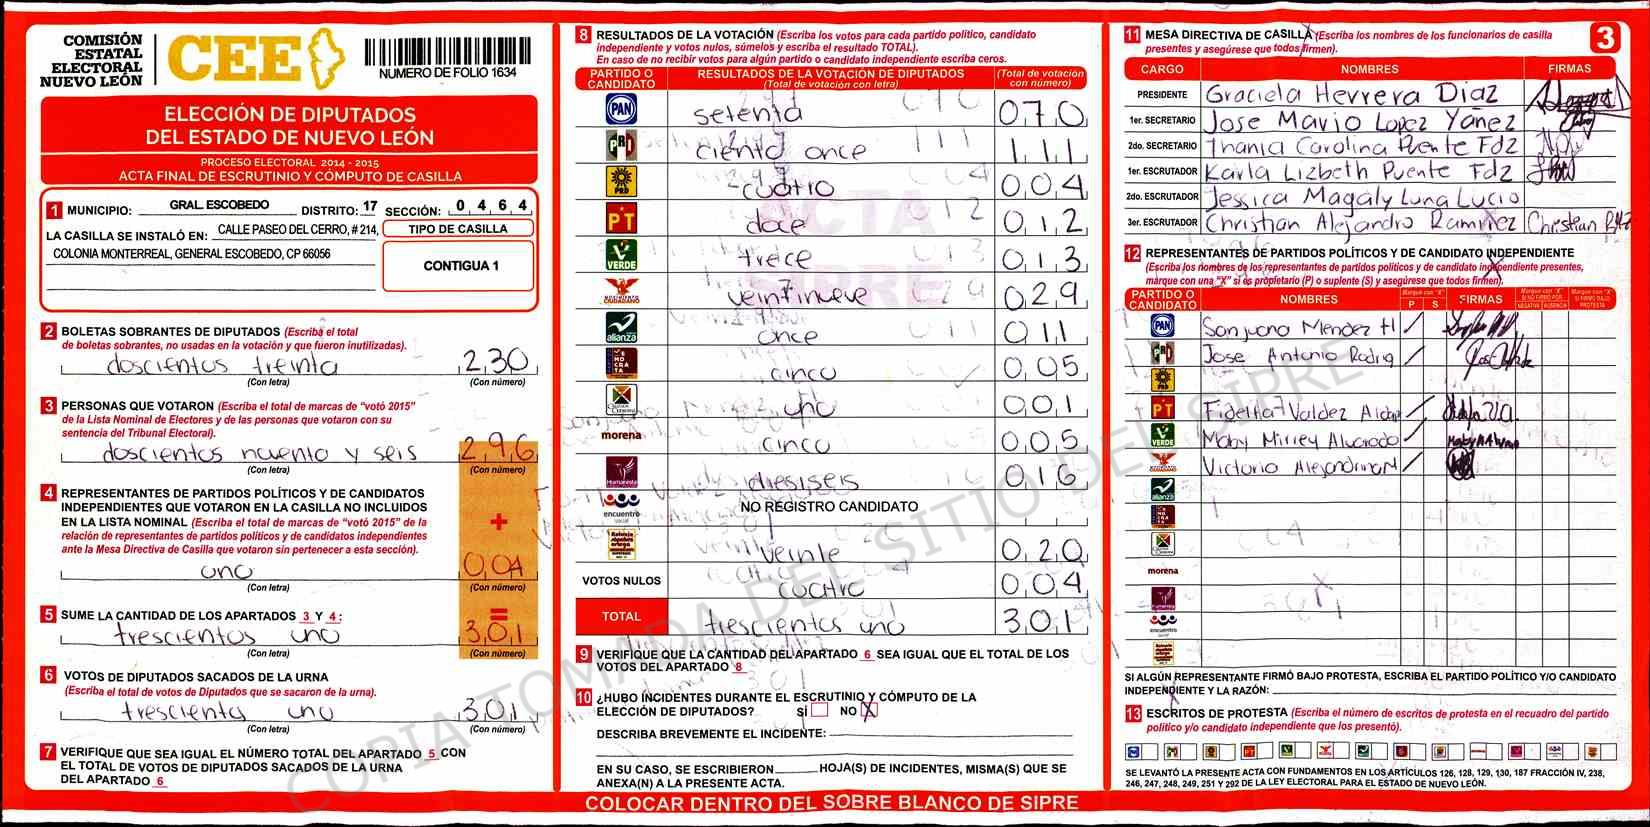 COMISIÓN
ESTATAL
ELECTORAL
NUEVO LEÓN
CEE
NUMERO DE FOLIO 1634
ELECCIÓN DE DIPUTADOS
DEL ESTADO DE NUEVO LEÓN
PROCESO ELECTORAL 2014 - 2015
ACTA FINAL DE ESCRUTINIO Y CÓMPUTO DE CASILLA
1 MUNICIPIO: GRAL. ESCOBEDO DISTRITO: 17 SECCIÓN: 0 4 6 4
LA CASILLA SE INSTALÓ EN: CALLE PASEO DEL CERRO, # 214,
COLONIA MONTERREAL, GENERAL ESCOBEDO, CP 66056
TIPO DE CASILLA
CONTIGUA 1
2 BOLETAS SOBRANTES DE DIPUTADOS (Escriba el total
de boletas sobrantes, no usadas en la votación y que fueron inutilizadas).
doscientos treinta 2,30
(Con letra) (Con número)
3 PERSONAS QUE VOTARON (Escriba el total de marcas de “votó 2015”
de la Lista Nominal de Electores y de las personas que votaron con su
sentencia del Tribunal Electoral).
doscientos noventa y seis 2,9,6
(Con letra) (Con número)
4 REPRESENTANTES DE PARTIDOS POLÍTICOS Y DE CANDIDATOS
INDEPENDIENTES QUE VOTARON EN LA CASILLA NO INCLUIDOS
EN LA LISTA NOMINAL (Escriba el total de marcas de “votó 2015” de la
relación de representantes de partidos políticos y de candidatos independientes
ante la Mesa Directiva de Casilla que votaron sin pertenecer a esta sección).
+
uno 0,04
(Con letra) (Con número)
5 SUME LA CANTIDAD DE LOS APARTADOS 3 Y 4: =
trescientos uno 3,0,1
(Con letra) (Con número)
6 VOTOS DE DIPUTADOS SACADOS DE LA URNA
(Escriba el total de votos de Diputados que se sacaron de la urna).
trescienta uno 3,0,1
(Con letra) (Con número)
7 VERIFIQUE QUE SEA IGUAL EL NÚMERO TOTAL DEL APARTADO 5 CON
EL TOTAL DE VOTOS DE DIPUTADOS SACADOS DE LA URNA
DEL APARTADO 6
8 RESULTADOS DE LA VOTACIÓN (Escriba los votos para cada partido político, candidato
independiente y votos nulos, súmelos y escriba el resultado TOTAL).
En caso de no recibir votos para algún partido o candidato independiente escriba ceros.
PARTIDO O CANDIDATO RESULTADOS DE LA VOTACIÓN DE DIPUTADOS (Total de votación con letra) (Total de votación con número)
PAN setenta 0,7,0
PRI ciento once 1,1,1
PRD cuatro 0,0,4
PT doce 0,1,2
VERDE trece 0,1,3
CIUDADANO veintinueve 0,2,9
alianza once 0,1,1
DEMOCRATA cinco 0,0,5
uno 0,0,1
morena cinco 0,0,5
Humanista diesiseis 0,1,6
encuentro social NO REGISTRO CANDIDATO
veinte 0,2,0
VOTOS NULOS cuatro 0,0,4
TOTAL trescientos uno 3,0,1
9 VERIFIQUE QUE LA CANTIDAD DEL APARTADO 6 SEA IGUAL QUE EL TOTAL DE LOS
VOTOS DEL APARTADO 8
10 ¿HUBO INCIDENTES DURANTE EL ESCRUTINIO Y CÓMPUTO DE LA
ELECCIÓN DE DIPUTADOS? SÍ NO X
DESCRIBA BREVEMENTE EL INCIDENTE:
EN SU CASO, SE ESCRIBIERON HOJA(S) DE INCIDENTES, MISMA(S) QUE SE
ANEXA(N) A LA PRESENTE ACTA.
COLOCAR DENTRO DEL SOBRE BLANCO DE SIPRE
11 MESA DIRECTIVA DE CASILLA (Escriba los nombres de los funcionarios de casilla
presentes y asegúrese que todos firmen).
3
CARGO NOMBRES FIRMAS
PRESIDENTE Graciela Herrera Diaz
1er. SECRETARIO Jose Mario Lopez Yañez
2do. SECRETARIO Thania Carolina Puente Fdz
1er. ESCRUTADOR Karla Lizbeth Puente Fdz
2do. ESCRUTADOR Jessica Magaly Luna Lucio
3er. ESCRUTADOR Christian Alejandro Ramirez Christian
12 REPRESENTANTES DE PARTIDOS POLÍTICOS Y DE CANDIDATO INDEPENDIENTE
(Escriba los nombres de los representantes de partidos políticos y de candidato independiente presentes,
marque con una “X” si es propietario (P) o suplente (S) y asegúrese que todos firmen).
PARTIDO O CANDIDATO NOMBRES Marque con “X” P S FIRMAS Marque con “X” SI NO FIRMÓ POR NEGATIVA AUSENCIA Marque con “X” SI FIRMÓ BAJO PROTESTA
PAN Sanjuana Mendez H
PRI Jose Antonio Rodrig
PRD
PT Fidelia Valdez
VERDE Maby Mirrey Alvarado
Victoria Alejandrina M
alianza
morena
Humanista
encuentro social
SI ALGÚN REPRESENTANTE FIRMÓ BAJO PROTESTA, ESCRIBA EL PARTIDO POLÍTICO Y/O CANDIDATO
INDEPENDIENTE Y LA RAZÓN:
13 ESCRITOS DE PROTESTA (Escriba el número de escritos de protesta en el recuadro del partido
político y/o candidato independiente que los presentó).
SE LEVANTÓ LA PRESENTE ACTA CON FUNDAMENTOS EN LOS ARTÍCULOS 126, 128, 129, 130, 187 FRACCIÓN IV, 238,
246, 247, 248, 249, 251 Y 292 DE LA LEY ELECTORAL PARA EL ESTADO DE NUEVO LEÓN.
ACTA
SIPRE
COPIA TOMADA DEL SITIO DEL SIPRE